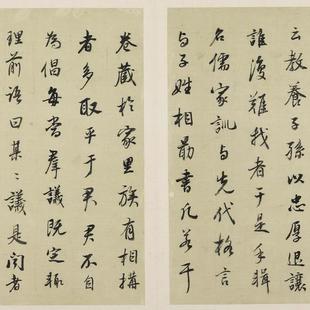 云教養子孫以忠厚退讓
誰復難我者于是手輯
名儒家訓与先代格言
与子姓相勗書凡若干
卷藏於家里族有相搆
者多取平于君君不自
為倡每當羣議既定輙
理前語曰某〻議是聞者